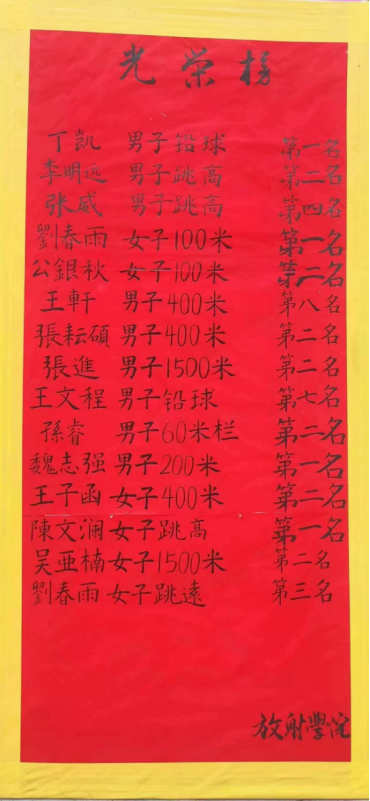 光荣榜
丁凱 男子铅球 第一名
李明远 男子跳高 第二名
张威 男子跳高 第四名
劉春雨 女子100米 第一名
公銀秋 女子100米 第二名
王軒 男子400米 第八名
張耘碩 男子400米 第二名
張進 男子1500米 第二名
王文程 男子铅球 第七名
孫睿 男子60米栏 第二名
魏志强 男子200米 第一名
王子函 女子400米 第二名
陳文澜 女子跳高 第一名
吴亜楠 女子1500米 第二名
劉春雨 女子跳遠 第三名
放射學院